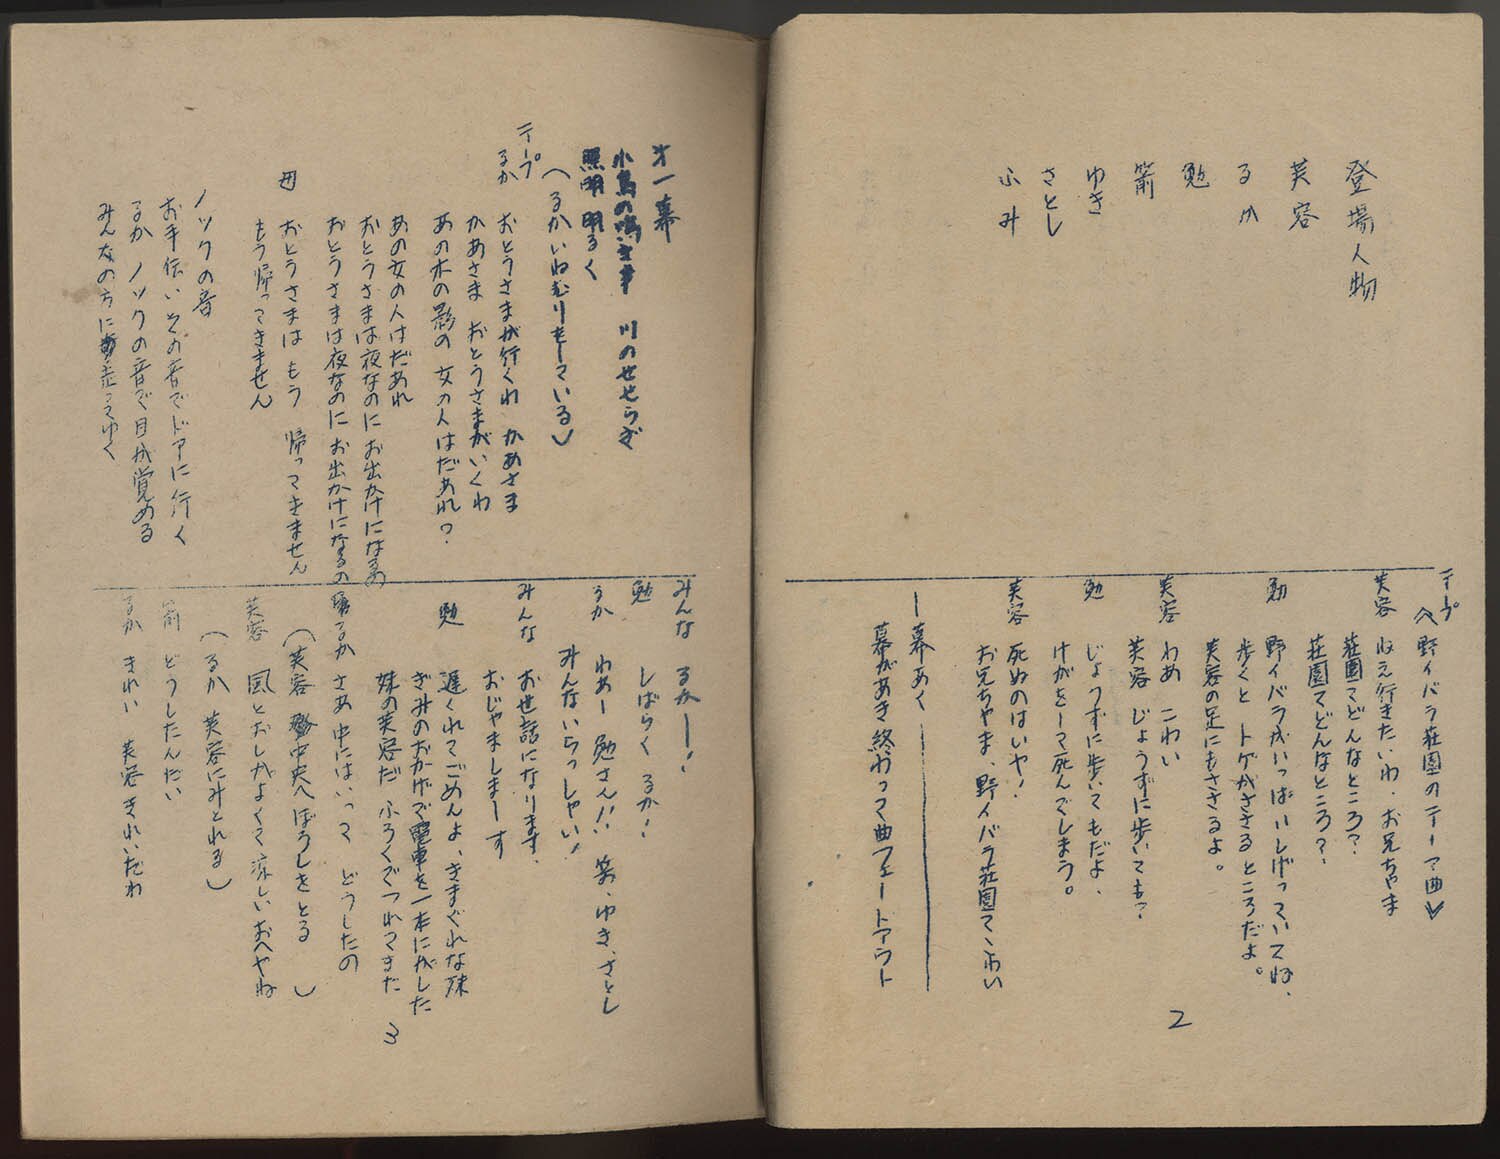 登場人物
芙容
るか
勉
箭
ゆき
さとし
ふみ
テープ
≪野イバラ荘園のテーマ曲≫
芙容 ねえ行きたいわ、お兄ちゃま
荘園てどんなところ?
荘園てどんなところ?
勉 野イバラがいっぱいしげっていてね、
歩くと トゲがささるところだよ。
芙容の足にもささるよ。
芙容 わあ こわい
芙容 じょうずに歩いても?
勉 じょうずに歩いてもだよ、
けがをして死んでしまう。
芙容 死ぬのはいや!
お兄ちゃま、野イバラ荘園てこわい
―幕あく―
幕があき終わって曲フェードアウト
2
才一幕
小鳥の鳴き声 川のせせらぎ
照明 明るく
(るかいねむりをしている)
テープ
るか おとうさまが行くわ かあさま
かあさま おとうさまがいくわ
あの木の影の 女の人はだあれ?
あの女の人はだあれ
おとうさまは夜なのにお出かけになるの
おとうさまは夜なのに お出かけになるの
母 おとうさまは もう 帰ってきません
もう帰ってきません
ノックの音
お手伝いその音でドアに行く
るか ノックの音で目が覚める
みんなの方に走ってゆく
みんな るかー!
勉 しばらく るか!
るか わあー 勉さん!! 箭、ゆき、さとし
みんないらっしゃい!
みんな お世話になります、
おじゃましまーす
勉 遅くれてごめんよ、きまぐれな妹
ぎみのおかげで電車を一本にがした
妹の芙容だ ふろくでつれてきた
るか さあ中にはいって どうしたの
(芙容 中央へ ぼうしをとる )
芙容 風とおしがよくて涼しいおへやね
(るか 芙容にみとれる)
箭 どうしたんだい
るか きれい 芙容きれいだわ
3